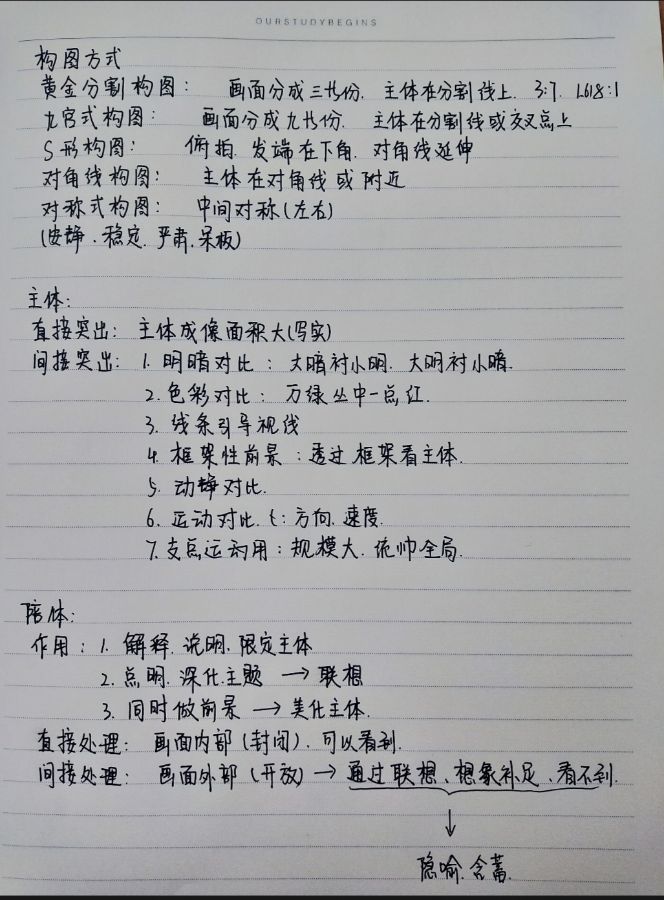 OURSTUDYBEGINS
构图方式
黄金分割构图： 画面分成三等份. 主体在分割线上. 3:7. 1.618:1
九宫式构图： 画面分成九等份. 主体在分割线或交叉点上
S形构图： 俯拍. 发端在下角. 对角线延伸
对角线构图： 主体在对角线或附近
对称式构图： 中间对称(左右)
(安静.稳定.严肃.呆板)
主体：
直接突出： 主体成像面积大(写实)
间接突出： 1. 明暗对比：大暗衬小明. 大明衬小暗.
2. 色彩对比： 万绿丛中一点红.
3. 线条引导视线
4. 框架性前景：透过框架看主体.
5. 动静对比.
6. 运动对比. 方向. 速度.
7. 支点运动用：规模大. 统帅全局.
陪体：
作用：1. 解释. 说明. 限定主体
2. 点明. 深化主题 → 联想
3. 同时做前景 → 美化主体.
直接处理： 画面内部(封闭). 可以看到.
间接处理： 画面外部(开放) → 通过联想、想象补足、看不到.
↓
隐喻.含蓄.